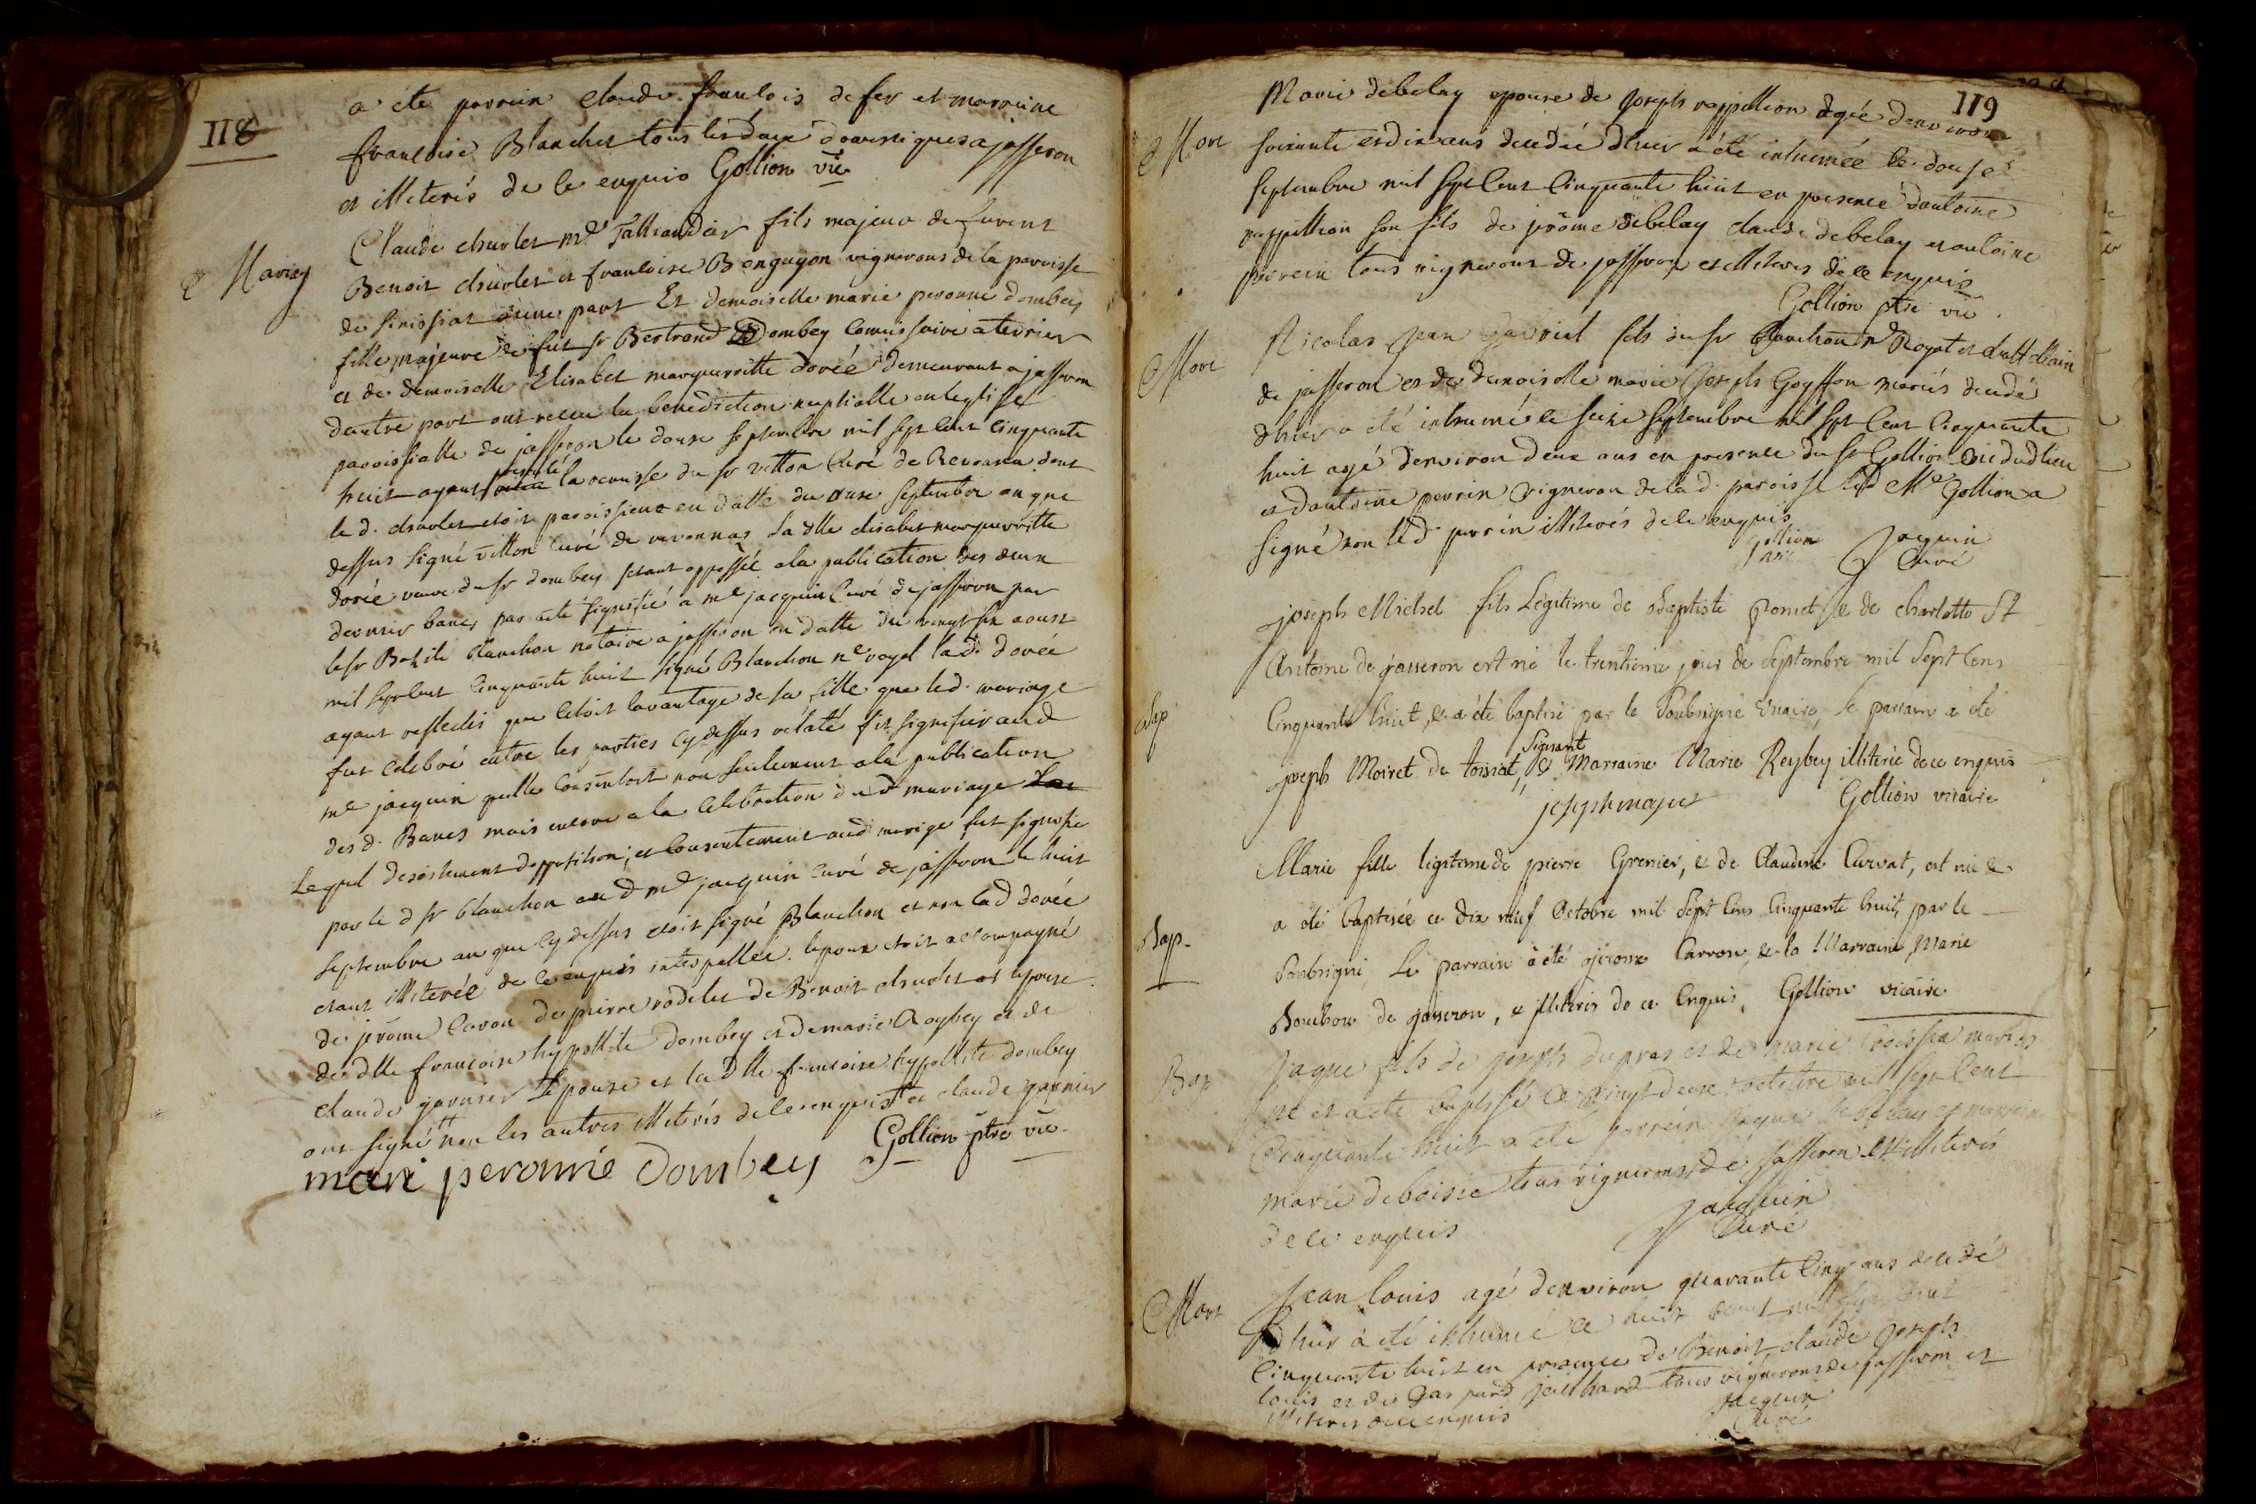 118
a été parrein claude francois defer et marraine
francoise Blanchet tous les deux domestiques a jasseron
et illiterés de ce enquis Gollion vic
Mariag
Claude charlet md Taillandier fils majeur de furent
Benoit charlet et francoise Benguyon vignerons de la paroisse
de simissiat d'une part Et demoiselle marie peronne dombey
fille majeure de fut sr Bertrand Dombey Commissaire a terrier
et de demoiselle Elisabet marguerritte dorée demeurant a jasseron
dautre part ont receu la benediction nuptialle en leglise
paroissialle de jasseron le douze septembre mil sept cent cinquante
huit ayant presenté la remisse du sr vitton curé de Revonna dont
le d. charlet etoit paroissien en datte du onze septembre an que
dessus signé vitton curé de revonnas la dlle elisabet marguerritte
dorée veuve du sr dombey setant opposée a la publication des deux
derniers bancs par acte signifié a me jacquin curé de jasseron par
le sr Bazile Blanchon notaire a jasseron en datte du vingt six aoust
mil sept cent cinquante huit signé Blanchon ne royal la d. dorée
ayant reflechis que cetoit lavantage de sa fille que led. mariage
fut celebré entre les parties cy dessus relaté fit signifier aud
me jacquin quelle consentoit non seulement a la publication
des d. Bancs mais encore a la celebration dud mariage
Lequel desistement dopposition, et consentement aud mariage fut signifié
par le d sr blanchon aud me jacquin curé de jasseron le huit
septembre an que cy dessus etoit signé Blanchon et non lad dorée
etant illiterée de ce enquis interpellée. lepoux etoit accompagné
de jerome Caron de pierre rodelet de Benoit charlet et lepouse
de dlle francoise hypollite dombey et de marie Reybey et de
claude garnier Lepouse et la dlle francoise hypollite dombey
ont signé non les autres illiterés de ce enquis et claude garnier
Gollion ptre vic
mari peronne dombey
119
Mort
Marie debelay epouse de joseph rappillion agée denviron
soixante et dix ans decedée dhier a été inhumée le douze
septembre mil sept cent cinquante huit en presence dantoine
rappillion son fils de jrôme debelay claude debelay et antoine
perrein tous vignerons de jasseron et illiteres de ce enquis
Gollion ptre vic
Mort
Nicolas jean gabriel fils du sr Blanchon nr Royal et chatellain
de jasseron et de demoiselle marie joseph Goyffon mariés decedé
dhier a été inhumé le seize septembre mil sept cent cinquante
huit agé denviron deux ans en presence du sr Gollion vic dud lieu
et dantoine perrin vigneron de la d. paroisse led Me Gollion a
signé non led perrin illiterés de ce enquis
Gollion
vic
Jacquin
Curé
Bap
joseph Michel fils Légitime de Baptiste Pomet & de Charlotte St
Antoine de jasseron est né le trentieme jour de Septembre mil Sept Cens
Cinquante huit, & a été baptisé par le Soubsigné Vicaire, le parrain a été
joseph Moiret de toissiat, Signant & Marraine Marie Reybey illiterée de ce enquis
joseph moiret
Gollion vicaire
Bap.
Marie fille legitime de pierre Grenier, & de Claudine Curvat, est née &
a été baptisée ce dix neuf Octobre mil Sept Cens Cinquante huit, par le
Soubsigné, Le parrain a été jérome Carron, & la Marraine, Marie
Bouchou de jasseron, & illiterés de ce Enquis. Gollion vicaire
Bap
Jaque fils de joseph dupras et de marie mariés
né et a été baptisé ce vingt deux octobre mil sept cent
Cinquante huit a été parrein Jaque et marraine
marie deboisse tous vignerons de jasseron et illiterés
de ce enquis
Jacquin
Curé
Mort
Jean louis agé denviron quarante cinq ans decedé
dhier a été inhumé ce huit mil sept cent
Cinquante huit en presence de Benoit claude joseph
louis et de Gaspard tous vignerons de jasseron et
illiteres de ce enquis
Jacquin
Curé